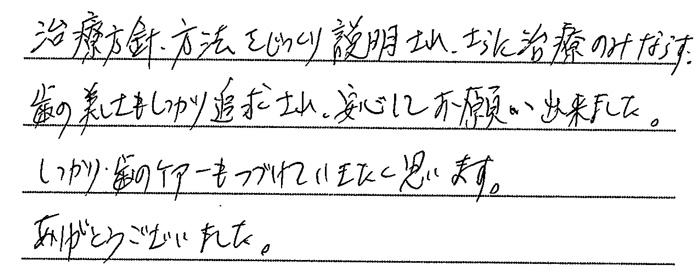 治療方針、方法をじっくり説明され、さらに治療のみならず、
歯の美しさもしっかり追求され、安心してお願い出来ました。
しっかり歯のケアーもつづけていきたく思います。
ありがとうございました。